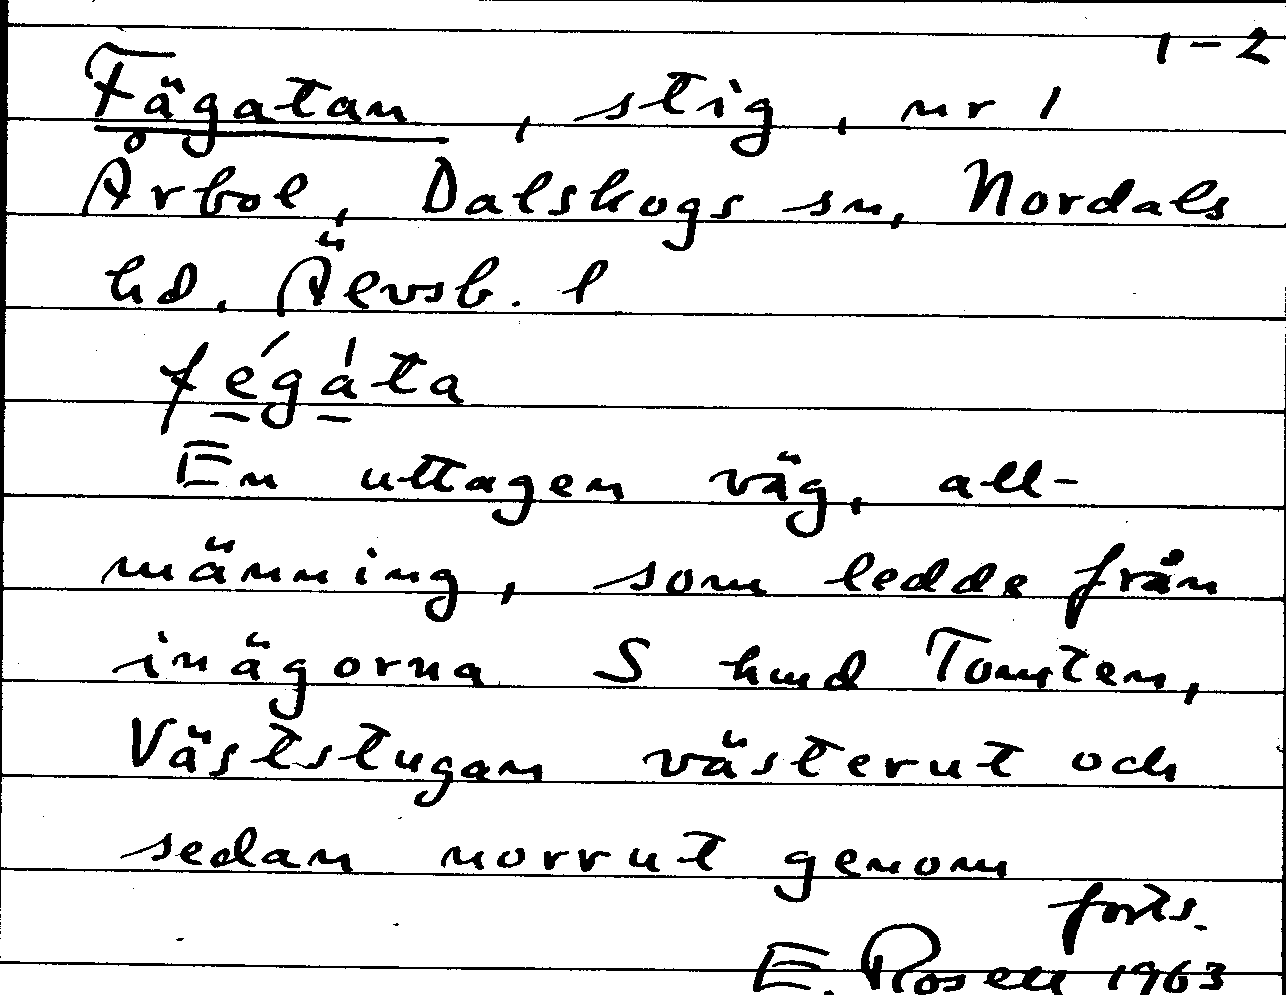 1-2
Fägatan, stig, nr 1
Årbol, Dalskogs sn, Nordals
hd. Älvsb. l
fe̲´ga̲´ta
En uttagen väg, all-
männing, som ledde från
inägorna S hmd Tomten,
Väststugan västerut och
sedan norrut genom
forts.
E. Rosell 1963